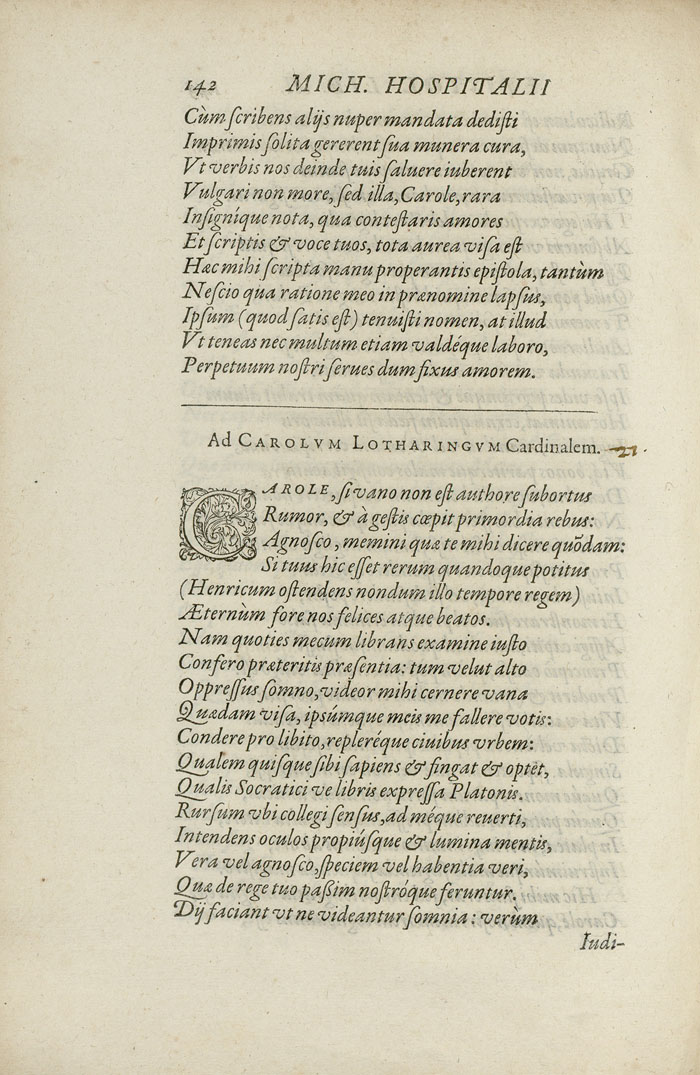 142 MICH. HOSPITALII
Cùm ſcribens alijs nuper mandata dediſti
Imprimis ſolita gererent ſua munera cura,
Vt verbis nos deinde tuis ſaluere iuberent
Vulgari non more, ſed illa, Carole, rara
Inſigníque nota, qua conteſtaris amores
Et ſcriptis & voce tuos, tota aurea viſa eſt
Hæc mihi ſcripta manu properantis epiſtola, tantùm
Neſcio qua ratione meo in prænomine lapſus,
Ipſum (quod ſatis eſt) tenuiſti nomen, at illud
Vt teneas nec multum etiam valdéque laboro,
Perpetuum noſtri ſerues dum fixus amorem.
Ad CAROLVM LOTHARINGVM Cardinalem. 21.
CAROLE, ſi vano non eſt authore ſubortus
Rumor, & à geſtis cœpit primordia rebus:
Agnoſco, memini quæ te mihi dicere quõdam:
Si tuus hic eſſet rerum quandoque potitus
(Henricum oſtendens nondum illo tempore regem)
Æternùm fore nos felices atque beatos.
Nam quoties mecum librans examine iuſto
Confero præteritis præſentia: tum velut alto
Oppreſſus ſomno, videor mihi cernere vana
Quædam viſa, ipsúmque meis me fallere votis:
Condere pro libito, repleréque ciuibus vrbem:
Qualem quiſque ſibi ſapiens & fingat & optet,
Qualis Socratici ve libris expreſſa Platonis.
Rurſum vbi collegi ſenſus, ad méque reuerti,
Intendens oculos propiúſque & lumina mentis,
Vera vel agnoſco, ſpeciem vel habentia veri,
Quæ de rege tuo paßim noſtróque feruntur.
Dij faciant vt ne videantur ſomnia: verùm
Iudi-